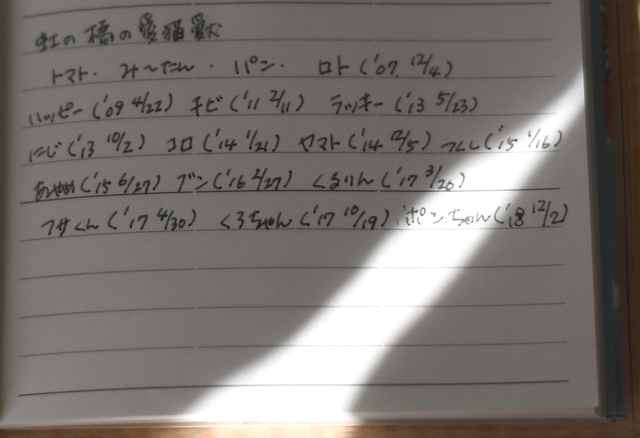 虹の橋の愛猫獣
トマト・みーたん・パン・ロト('07. 12/4)
ハッピー('09 4/22) チビ('11 2/11) ラッキー('13 5/23)
にじ('13 10/2) コロ('14 1/21) ヤマト('14 12/5) つくし('15 1/16)
あやめ('15 6/27) ブン('16 2/27) くるりん('17 3/20)
フサくん('17 4/30) くろちゃん('17 10/19) ポンちゃん('18 12/2)